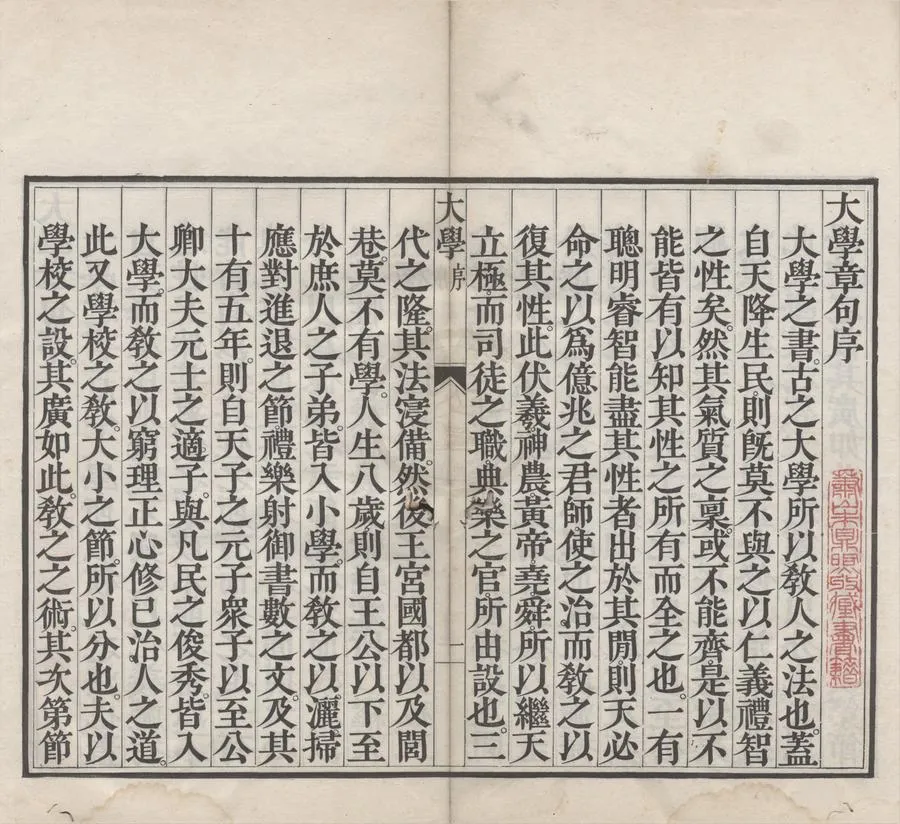 大學章句序
大學之書。古之大學所以敎人之法也。蓋
自天降生民。則旣莫不與之以仁義禮智
之性矣。然其氣質之稟。或不能齊。是以不
能皆有以知其性之所有而全之也。一有
聰明睿智能盡其性者出於其閒。則天必
命之以爲億兆之君師。使之治而敎之以
復其性。此伏羲神農黃帝堯舜所以繼天
立極。而司徒之職典樂之官所由設也。三
大學 序
一
代之隆。其法寖備。然後王宮國都以及閭
巷。莫不有學。人生八歲則自王公以下至
於庶人之子弟。皆入小學。而敎之以灑掃
應對進退之節。禮樂射御書數之文。及其
十有五年。則自天子之元子衆子以至公
卿大夫元士之適子。與凡民之俊秀。皆入
大學。而敎之以窮理正心修己治人之道。
此又學校之敎。大小之節。所以分也。夫以
學校之設。其廣如此。敎之之術。其次第節